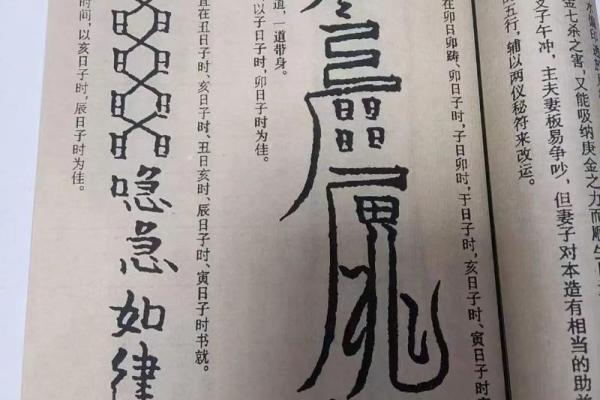 水偏印透
金七杀之害，又能吸纳庚金之力而顺生
又子午冲，主夫妻极易争吵，但妻子对本造有相当的助益
的五行，辅以两仪秘符来改运。
在卯日卯畴、卯日子时，子日卯时，于日子时，亥日子时、寅日子时
道，一道带身。
以子日子时，卯日子时为佳。
宜在丑日子时、亥日子时、丑日亥时、辰日子时、寅日子时书就。
喼急如律
时间，以亥日子时，辰日子时为佳。